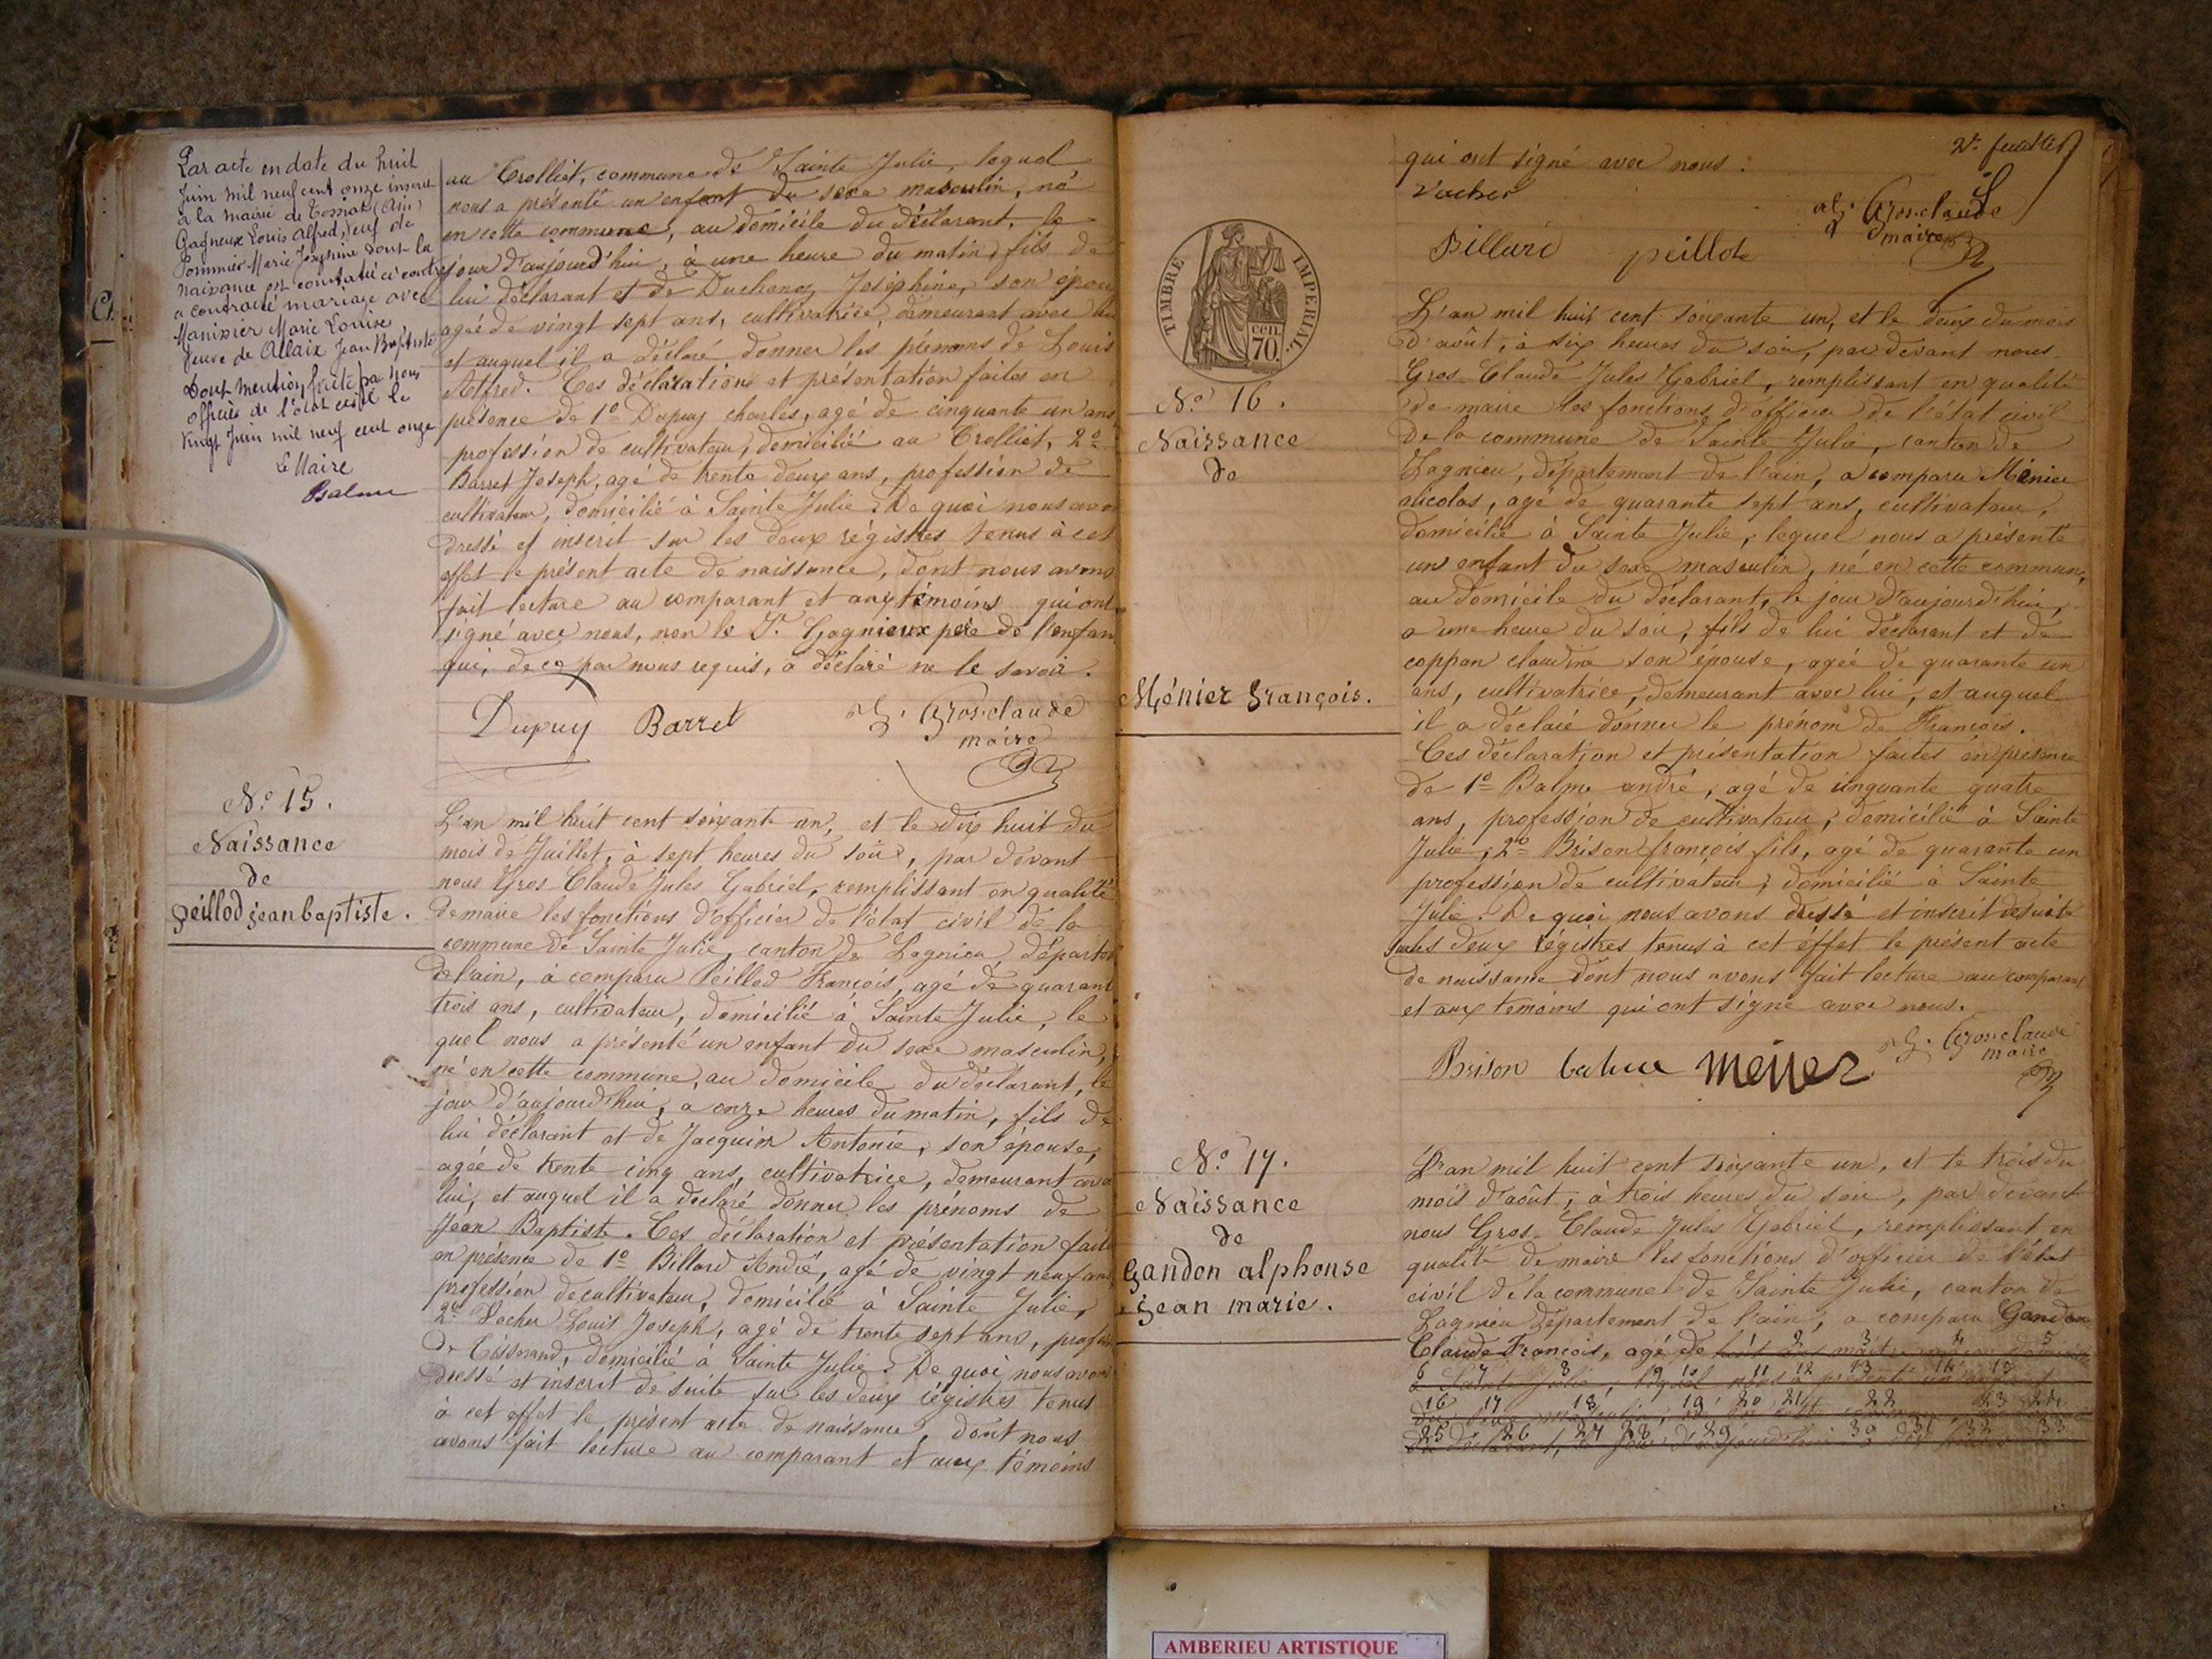 Par acte en date du huit
Juin mil neuf cent onze inscrit
à la mairie de Tossiat (Ain)
Gagneux Louis Alfred, veuf de
Pommier Marie Joséphine dont la
naissance est constatée ci contre
a contracté mariage avec
Marie Louise
veuve de Allaix Jean Baptiste
Dont mention faite par nous
officier de l'état civil le
vingt Juin mil neuf cent onze
Le Maire
Balme
au Trolliet, commune de Sainte Julie, lequel
nous a présenté un enfant du sexe masculin, né
en cette commune, au domicile du déclarant, le
jour d'aujourd'hui, à une heure du matin, fils de
lui déclarant et de Joséphine, son épou
agée de vingt sept ans, cultivatrice, demeurant avec lui
et auquel il a déclaré donner les prénoms de Louis
Alfred. Ces déclaration et présentation faites en
présence de 1º Dupuy charles, agé de cinquante un ans
profession de cultivateur, domicilié au Trolliet, 2º
Barret Joseph, agé de trente deux ans, profession de
cultivateur, domicilié à Sainte Julie. De quoi nous avon
dressé et inscrit sur les deux régistres tenus à cet
effet le présent acte de naissance, dont nous avons
fait lecture au comparant et aux témoins qui ont
signé avec nous, non le Sr. Gagnieux père de l'enfan
qui, de ce par nous requis, a déclaré ne le savoir.
Dupuy Barret J. Grosclaude
maire
Nº 15.
Naissance
de
peillod jean baptiste.
L'an mil huit cent soixante un, et le dix huit du
mois de Juillet, à sept heures du soir, par devant
nous Gros-Claude Jules Gabriel, remplissant en qualité
de maire les fonctions d'officier de l'état civil de la
commune de Sainte Julie, canton de Lagnieu, départem
de l'ain, à comparu Peillod François, agé de quarant
trois ans, cultivateur, domicilié à Sainte Julie, le
quel nous a présenté un enfant du sexe masculin,
né en cette commune, au domicile du déclarant, le
jour d'aujourd'hui, a onze heures du matin, fils de
lui déclarant et de Jacquin Antonie, son épouse,
agée de trente cinq ans, cultivatrice, demeurant avec
lui, et auquel il a déclaré donner les prénoms de
Jean Baptiste. Ces déclaration et présentation faites
en présence de 1º Billard André, agé de vingt neuf ans
profession de cultivateur, domicilié à Sainte Julie,
2º Vacher Louis Joseph, agé de trente sept ans, profes
de Tisserand, domicilié à Sainte Julie. De quoi nous avon
dressé et inscrit de suite sur les deux régistres tenus
à cet effet le présent acte de naissance, dont nous
avons fait lecture au comparant et aux témoins
2e. feuillet
qui ont signé avec nous:
Vacher
J. Grosclaude
maire
Billard peillod
TIMBRE IMPERIAL
cen.
70.
Nº 16.
Naissance
de
Ménier François.
L'an mil huit cent soixante un, et le deux du mois
d'août, à six heures du soir, par devant nous
Gros-Claude Jules Gabriel, remplissant en qualité
de maire les fonctions d'officier de l'état civil
de la commune de Sainte Julie, canton de
Lagnieu, département de l'ain, a comparu Ménier
nicolas, agé de quarante sept ans, cultivateur,
domicilié à Sainte Julie, lequel nous a présenté
un enfant du sexe masculin, né en cette commune,
au domicile du déclarant, le jour d'aujourd'hui,
a une heure du soir, fils de lui déclarant et de
coppan claudine son épouse, agée de quarante un
ans, cultivatrice, demeurant avec lui, et auquel
il a déclaré donner le prénom de François.
Ces déclaration et présentation faites en présence
de 1º Balme andré, agé de cinquante quatre
ans, profession de cultivateur, domicilié à Sainte
Julie, 2º Brison françois fils, agé de quarante un
profession de cultivateur, domicilié à Sainte
Julie. De quoi nous avons dressé et inscrit de suite
sur les deux régistres tenus à cet éffet le présent acte
de naissance dont nous avons fait lecture au comparant
et aux temoins qui ont signé avec nous.
J. Grosclaude
maire
Brison balme menier
Nº 17.
Naissance
de
Gandon alphonse
jean marie.
L'an mil huit cent soixante un, et le trois du
mois d'août, à trois heures du soir, par devant
nous Gros-Claude Jules Gabriel, remplissant en
qualité de maire les fonctions d'officier de l'état
civil de la commune de Sainte Julie, canton de
Lagnieu département de l'ain, a comparu Gandon
Claude François, agé de
2 3 4 5
6 7 8 9 10 11 12 13 14 15
à Sainte Julie, lequel nous a présenté un enfant
16 17 18 19 20 21 22 23 24
du sexe masculin, né en cette commune
25 26 27 28 29 30 31 32 33
du déclarant, le jour d'aujourd'hui
AMBERIEU ARTISTIQUE